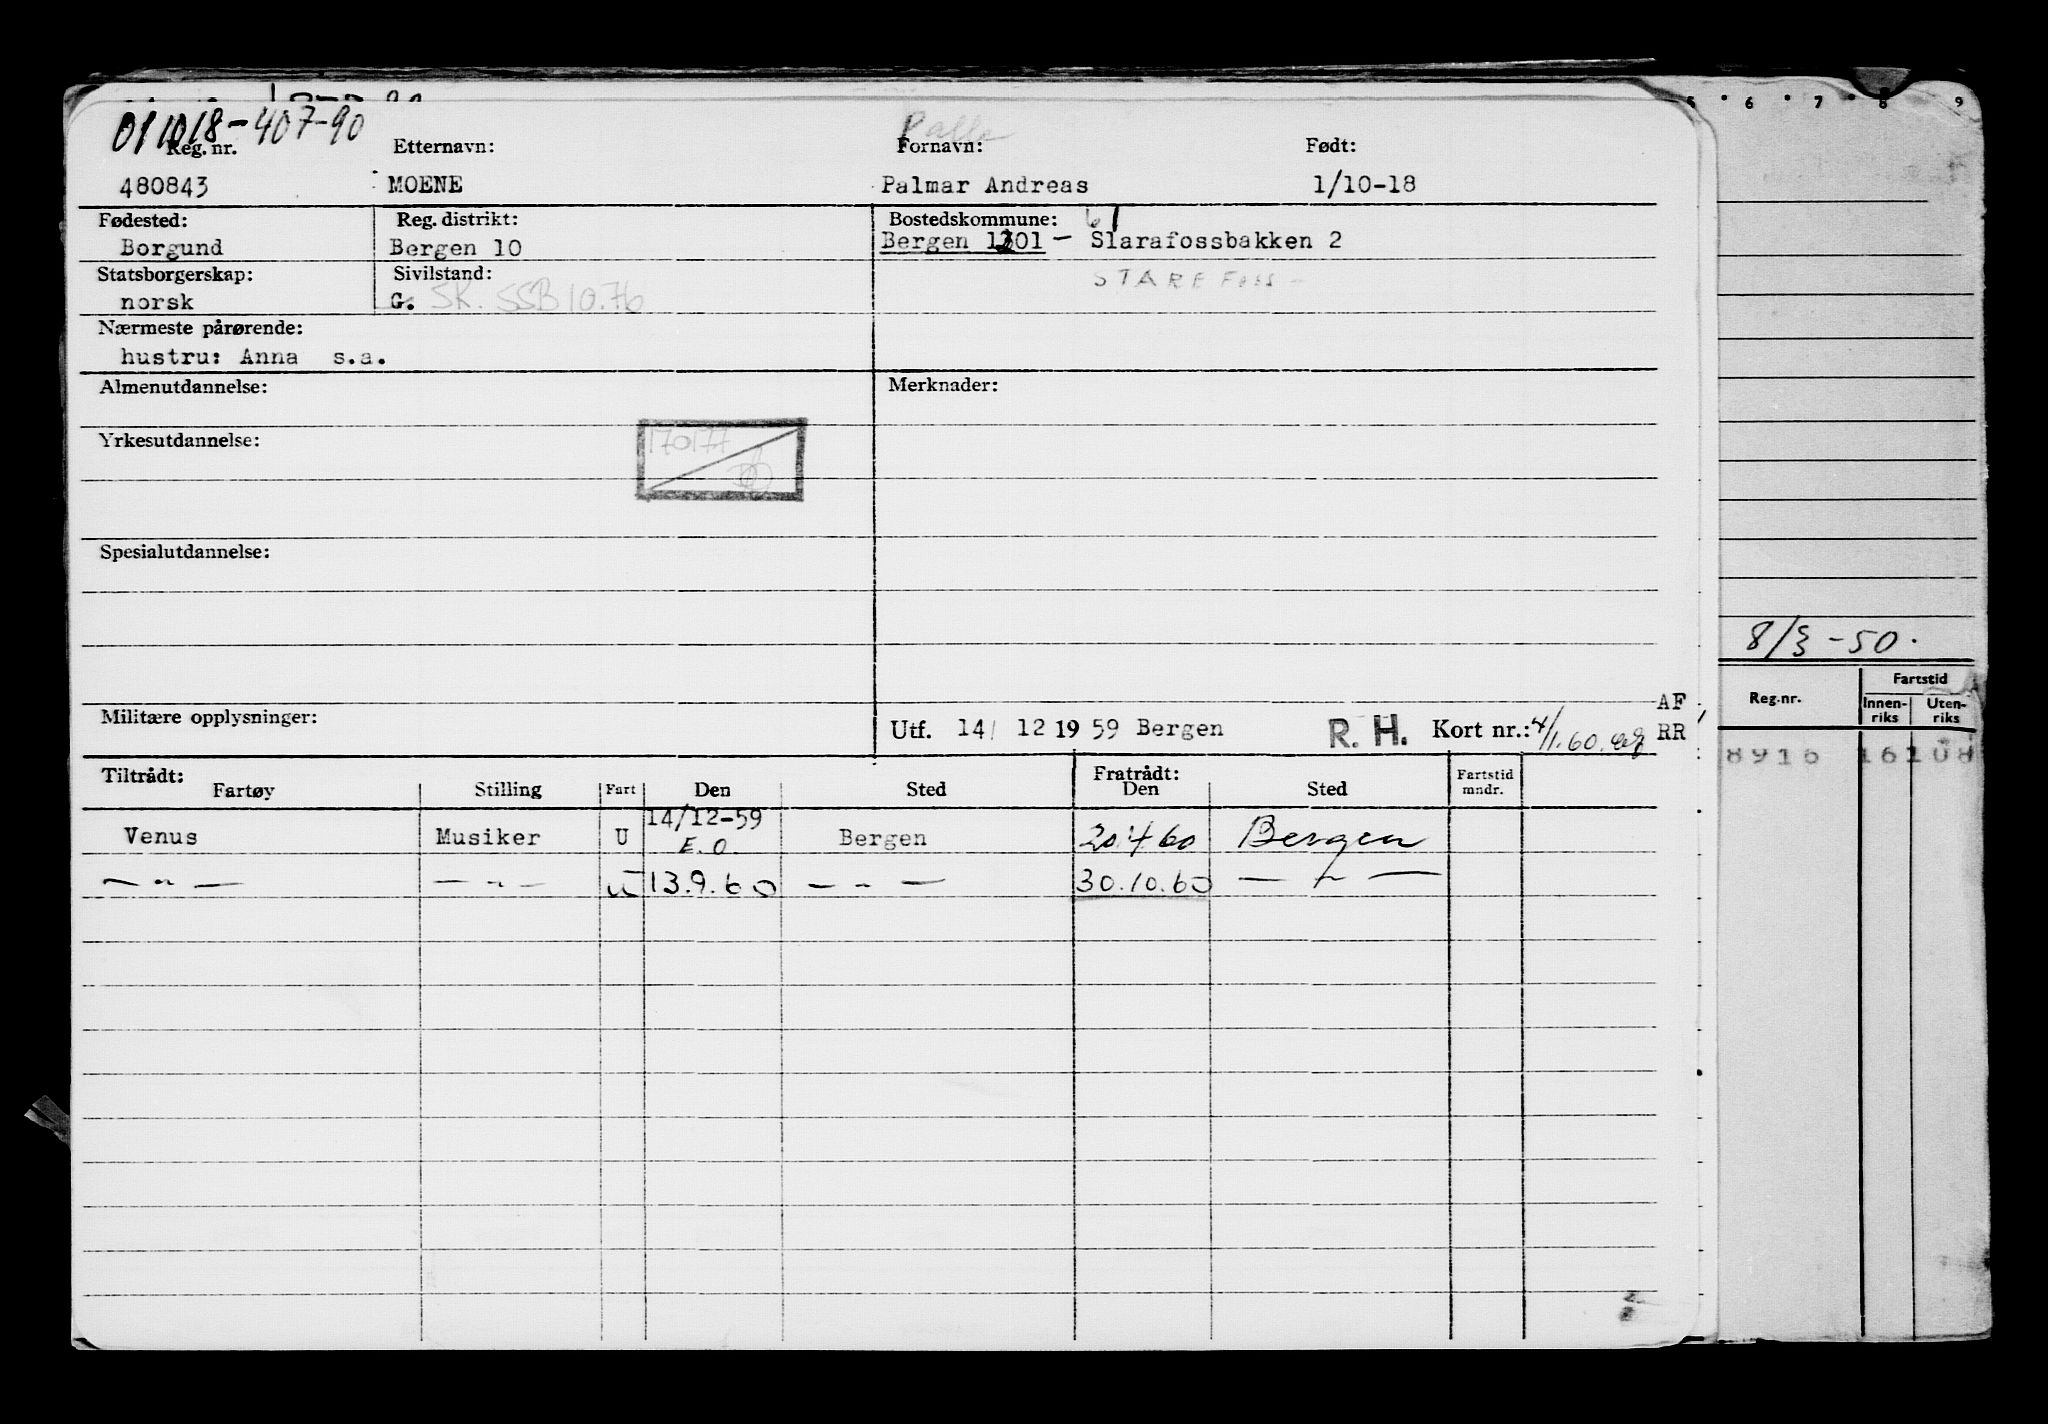 5 6 7 8 9
011018-407-90
Palle
Reg. nr. Etternavn: Fornavn: Født:
480843 MOENE Palmar Andreas 1/10-18
Fødested: Reg. distrikt: Bostedskommune: 61
Borgund Bergen 10 Bergen 1201 - Slarafossbakken 2
Statsborgerskap: Sivilstand: STAREFOSS -
norsk G. SK. SSB 10.76
Nærmeste pårørende:
hustru: Anna s.a.
Almenutdannelse: Merknader:
Yrkesutdannelse: 170177
Spesialutdannelse:
8/3-50.
Fartstid
Reg.nr. Innen-riks Uten-riks
AF
Militære opplysninger: Utf. 14/ 12 1959 Bergen R. H. Kort nr.: 4/1.60. RR
8916 16108
Tiltrådt: Fratrådt: Fartstid
Fartøy Stilling Fart Den Sted Den Sted mndr.
14/12-59
Venus Musiker U E.O. Bergen 20.4.60 Bergen
— „ — — „ — U 13.9.60 — „ — 30.10.60 — „ —